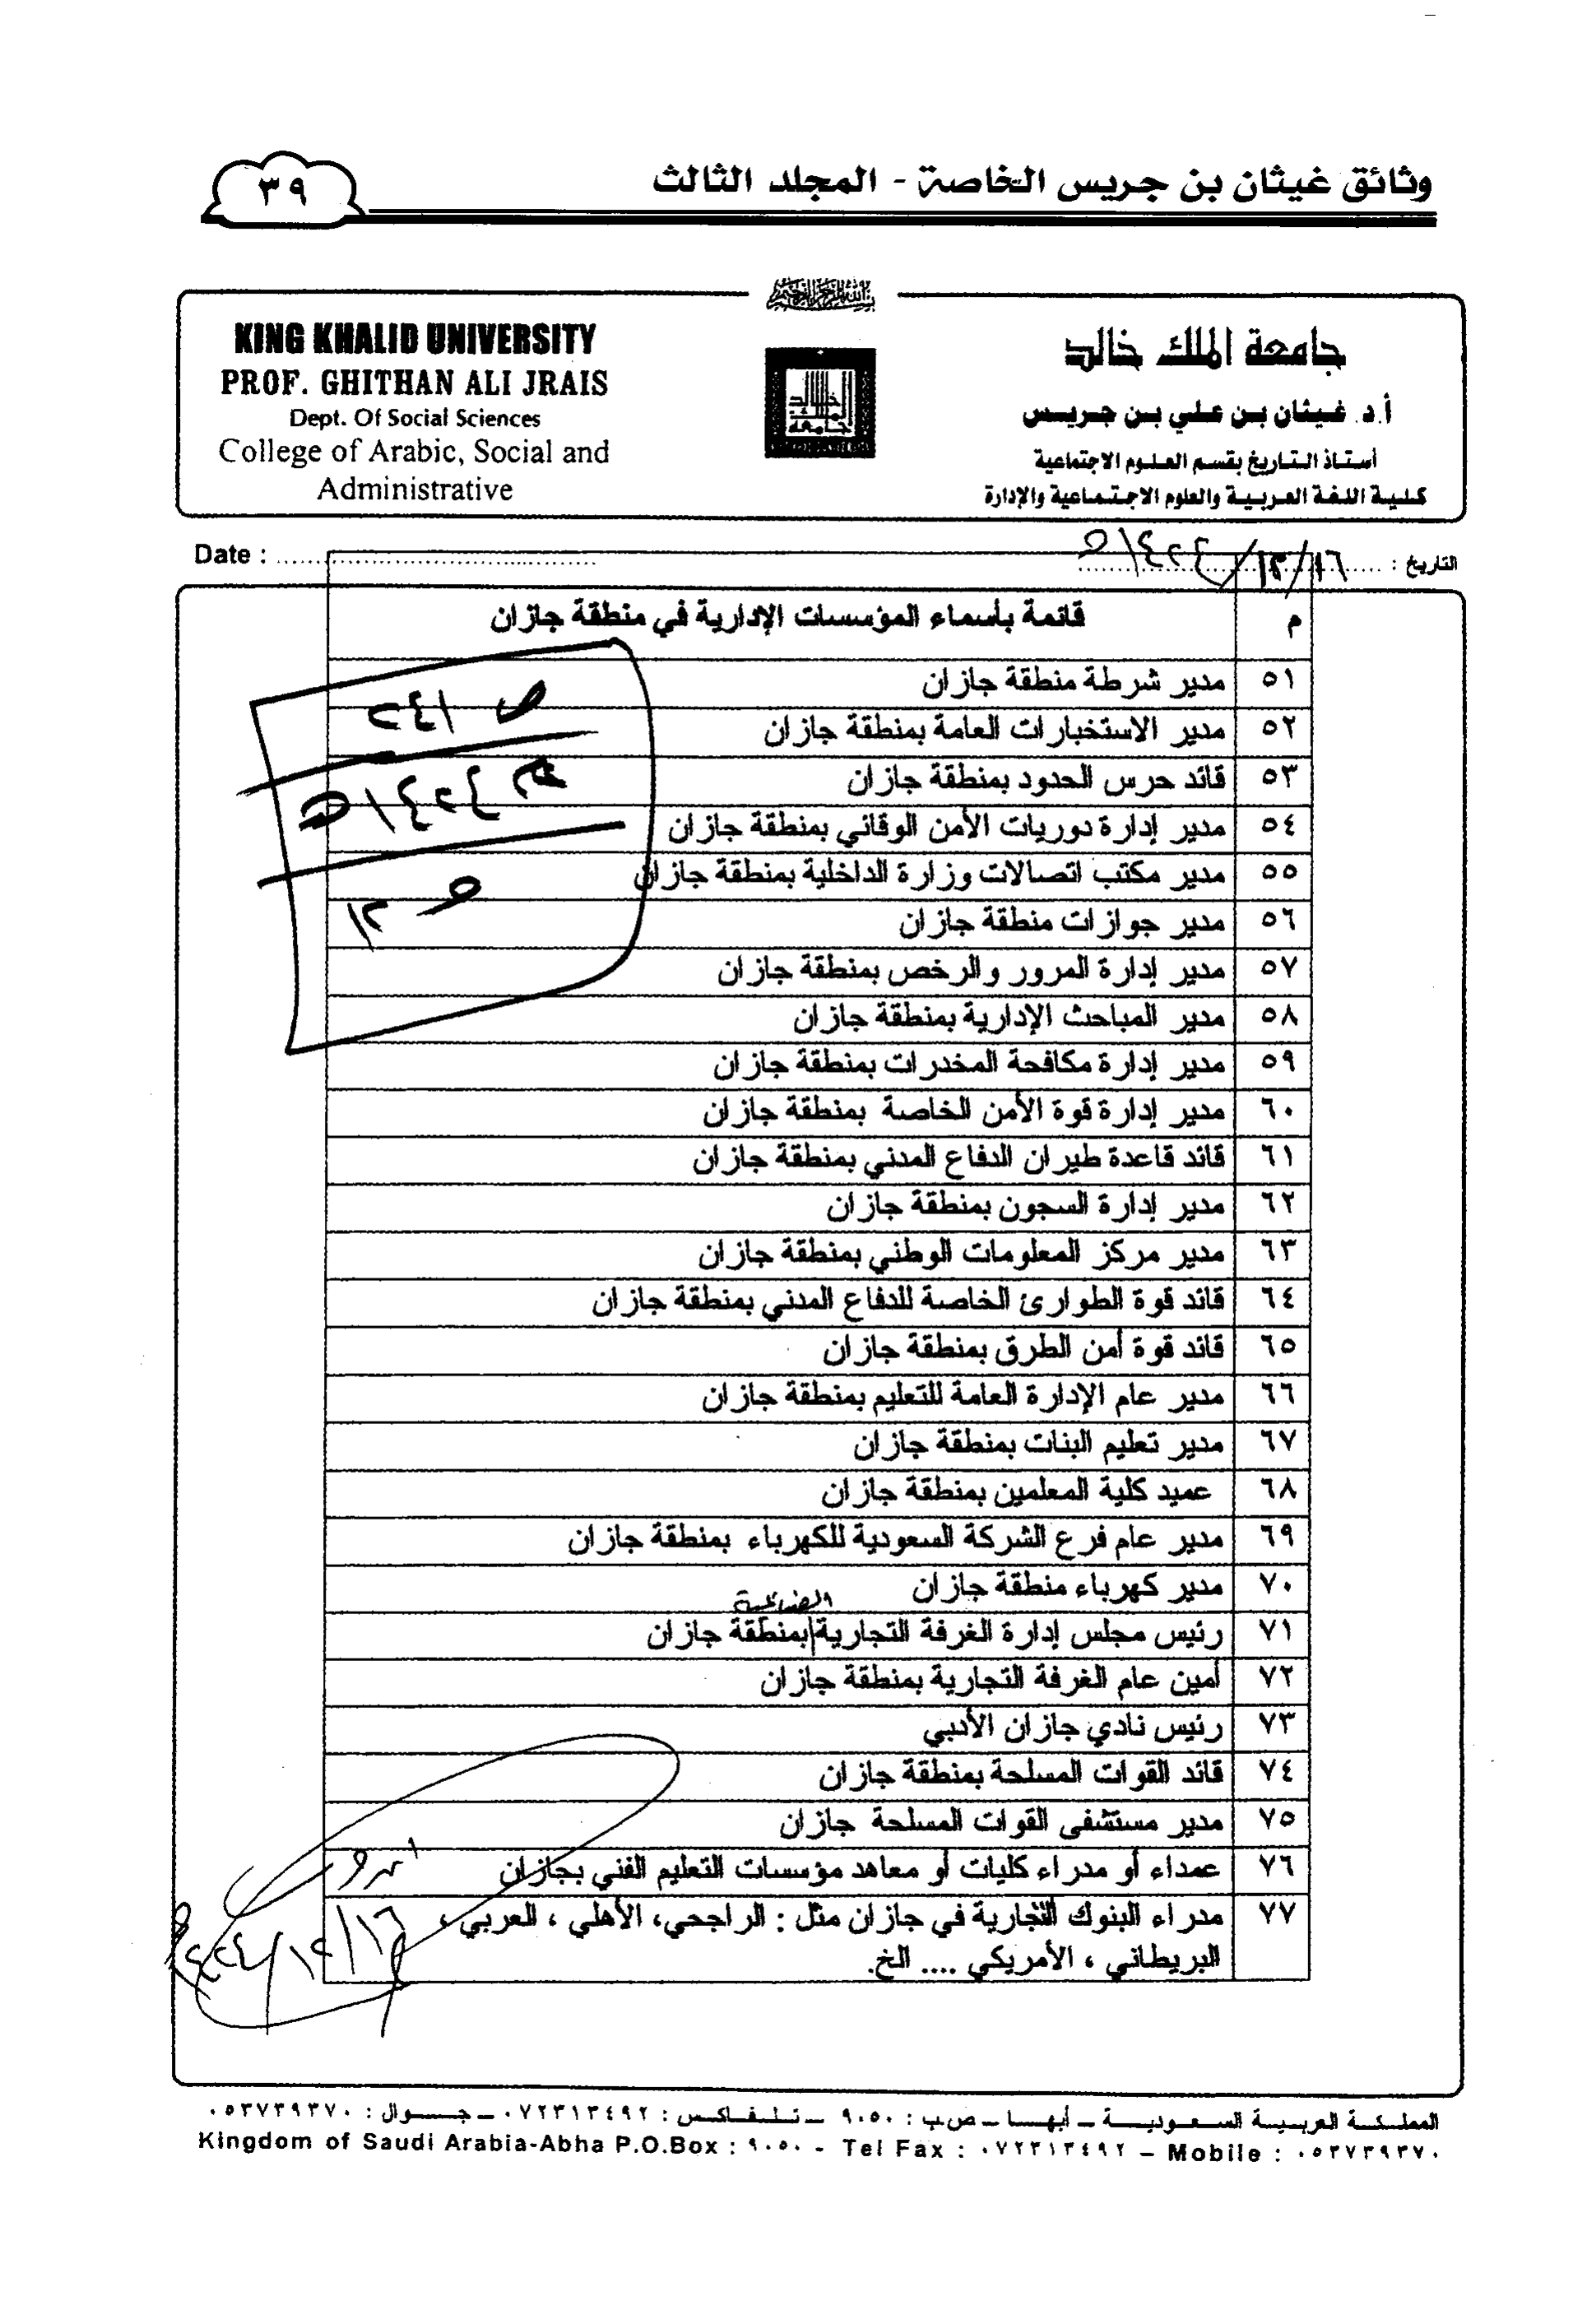 وثائق غيثان بن جريس الخاصة - المجلد الثالث
٣٩
بسم الله الرحمن الرحيم
KING KHALID UNIVERSITY
PROF. GHITHAN ALI JRAIS
Dept. Of Social Sciences
College of Arabic, Social and
Administrative
جامعة الملك خالد
أ.د. غيثان بن علي بن جريس
أستاذ التاريخ بقسم العلوم الاجتماعية
كلية اللغة العربية والعلوم الاجتماعية والإدارة
جامعة الملك خالد
التاريخ : ١٦/١٢/١٤٢٤هـ
Date :
م قائمة بأسماء المؤسسات الإدارية في منطقة جازان
٥١ مدير شرطة منطقة جازان
٥٢ مدير الاستخبارات العامة بمنطقة جازان
٥٣ قائد حرس الحدود بمنطقة جازان
٥٤ مدير إدارة دوريات الأمن الوقائي بمنطقة جازان
٥٥ مدير مكتب اتصالات وزارة الداخلية بمنطقة جازان
٥٦ مدير جوازات منطقة جازان
٥٧ مدير إدارة المرور والرخص بمنطقة جازان
٥٨ مدير المباحث الإدارية بمنطقة جازان
٥٩ مدير إدارة مكافحة المخدرات بمنطقة جازان
٦٠ مدير إدارة قوة الأمن الخاصة بمنطقة جازان
٦١ قائد قاعدة طيران الدفاع المدني بمنطقة جازان
٦٢ مدير إدارة السجون بمنطقة جازان
٦٣ مدير مركز المعلومات الوطني بمنطقة جازان
٦٤ قائد قوة الطوارئ الخاصة للدفاع المدني بمنطقة جازان
٦٥ قائد قوة أمن الطرق بمنطقة جازان
٦٦ مدير عام الإدارة العامة للتعليم بمنطقة جازان
٦٧ مدير تعليم البنات بمنطقة جازان
٦٨ عميد كلية المعلمين بمنطقة جازان
٦٩ مدير عام فرع الشركة السعودية للكهرباء بمنطقة جازان
٧٠ مدير كهرباء منطقة جازان
الصناعية
٧١ رئيس مجلس إدارة الغرفة التجارية بمنطقة جازان
٧٢ أمين عام الغرفة التجارية بمنطقة جازان
٧٣ رئيس نادي جازان الأدبي
٧٤ قائد القوات المسلحة بمنطقة جازان
٧٥ مدير مستشفى القوات المسلحة جازان
٧٦ عمداء أو مدراء كليات أو معاهد مؤسسات التعليم الفني بجازان
٧٧ مدراء البنوك التجارية في جازان مثل : الراجحي، الأهلي ، العربي ،
البريطاني ، الأمريكي .... الخ.
١٦/١٢/١٤٢٤هـ
المملكة العربية السعودية – أبها – ص.ب : ٩٠٥٠ – تلفاكس : ٠٧٢٣١٣٤٩٢ – جوال : ٠٥٣٧٣٩٣٧٠
Kingdom of Saudi Arabia-Abha P.O.Box : ٩٠٥٠ - Tel Fax : ٠٧٢٣١٣٤٩٢ – Mobile : ٠٥٣٧٣٩٣٧٠